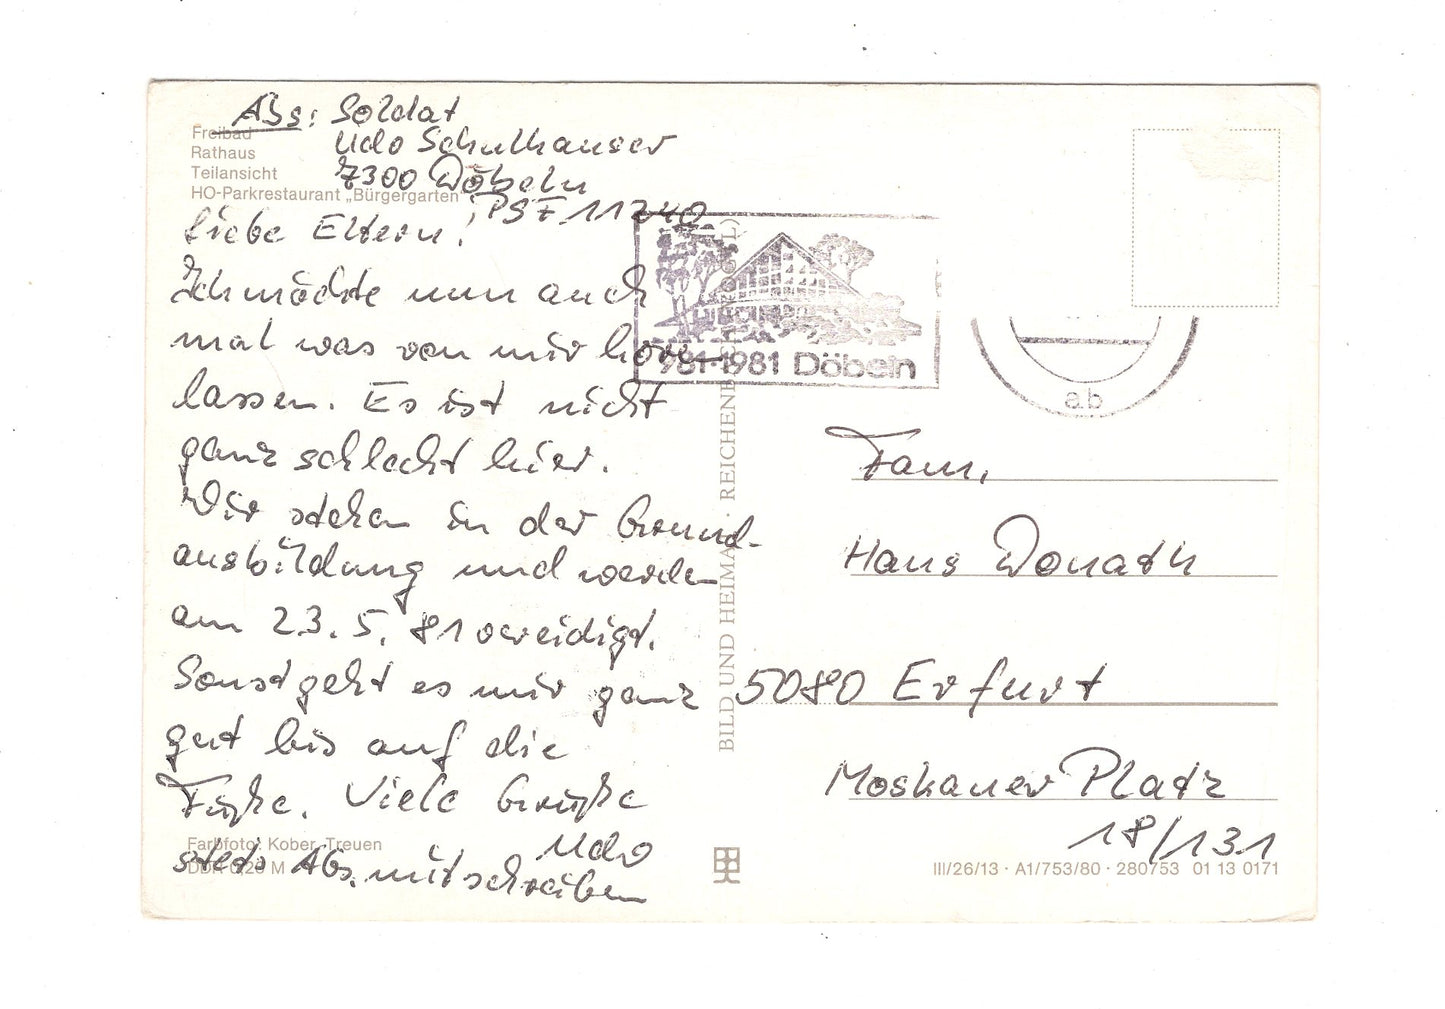 Abs: Soldat
Udo Schulhauser
7300 Döbeln
PSF 11240
Freibad
Rathaus
Teilansicht
HO-Parkrestaurant „Bürgergarten“
Liebe Eltern!
Ich möchte nun auch
mal was von mir hören
lassen. Es ist nicht
ganz schlecht hier.
Wir stehen in der Grund-
ausbildung und werden
am 23. 5. 81 vereidigt.
Sonst geht es mir ganz
gut bis auf die
Füße. Viele Grüße
Udo
stets Abs. mitschreiben
Farbfoto: Kober, Treuen
DDR 0,20 M
BILD UND HEIMAT REICHENBACH (VOGTL)
981-1981 Döbeln
ab
Fam.
Hans Donath
5080 Erfurt
Moskauer Platz
18/131
III/26/13 · A1/753/80 · 280753 01 13 0171